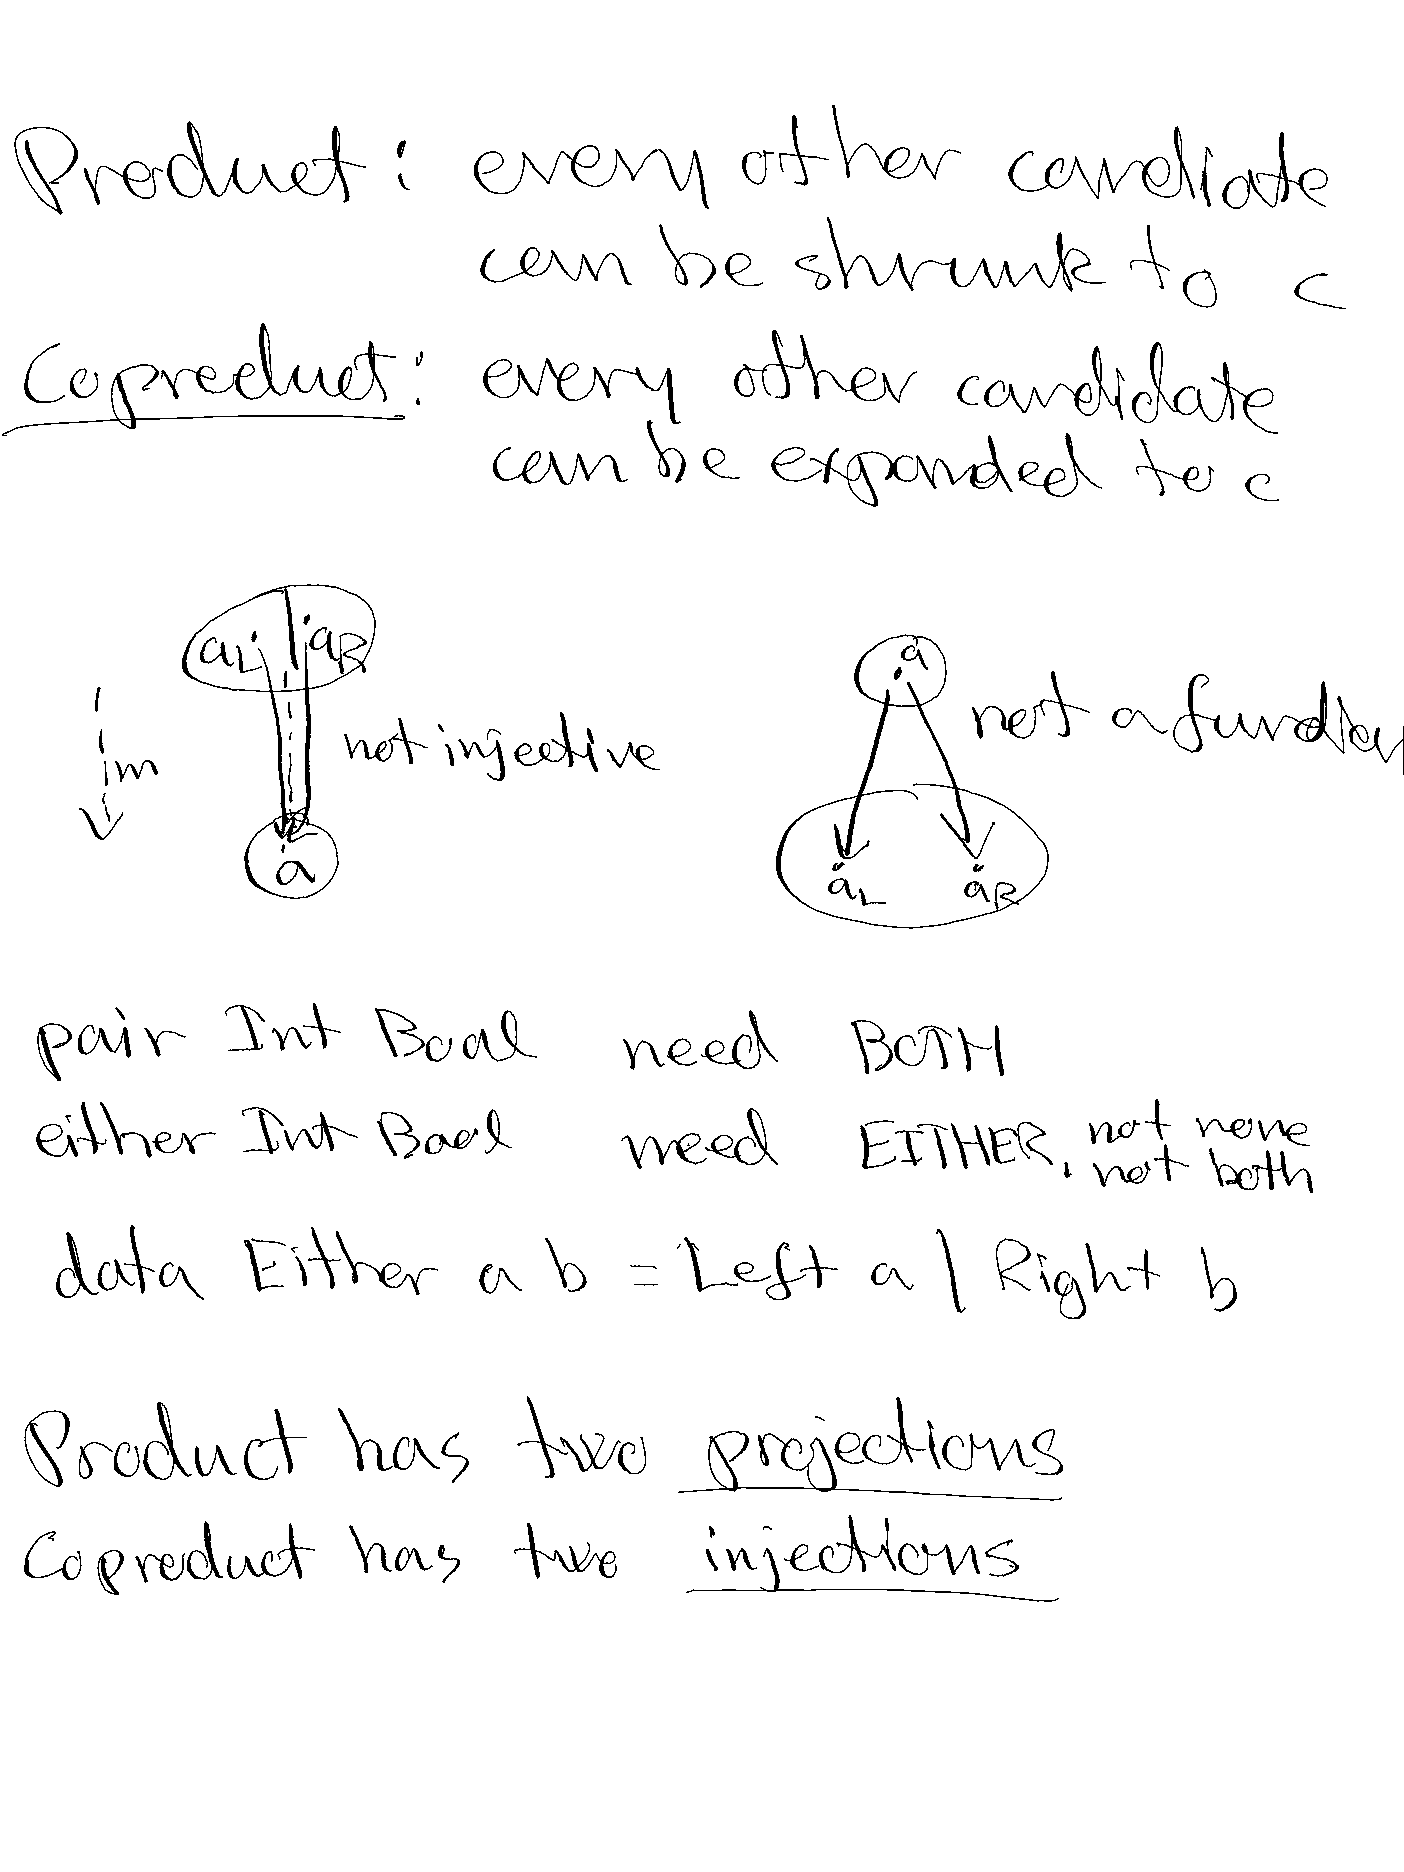 Product: every other candiate
can be shrunk to c
Coproduct: every other candidate
can be expanded to c
aL aR
a
not a function
im
not injective
a
aL aR
pair Int Bool need BOTH
either Int Bool need EITHER, not none
not both
data Either a b = Left a | Right b
Product has two projections
Coproduct has two injections